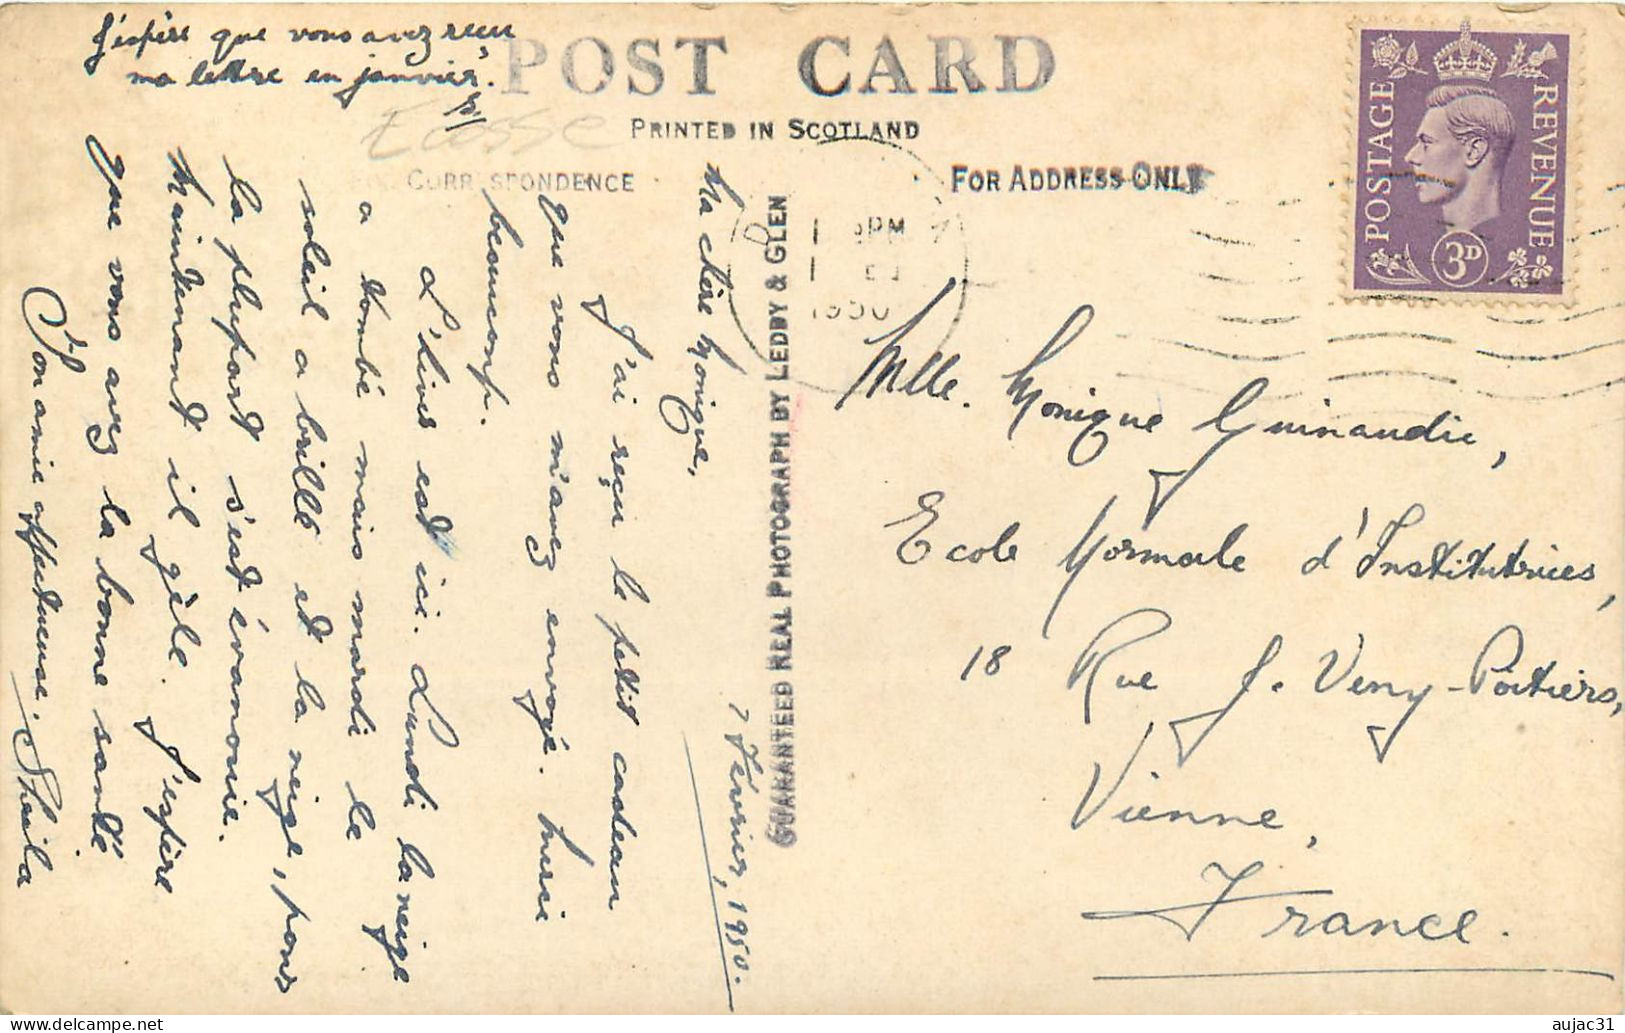 J'espère que vous avez reçu
ma lettre en janvier.
Ecosse
POST CARD
PRINTED IN SCOTLAND
FOR CORRESPONDENCE
FOR ADDRESS ONLY
POSTAGE
REVENUE
3D
PM
1950
GUARANTEED REAL PHOTOGRAPH BY LEDDY & GLEN
7 Février, 1950.
Ma chère Monique,
J'ai reçu le petit cadeau
que vous m'avez envoyé. Merci
beaucoup.
L'hiver est ici. Lundi la neige
a tombé mais mardi le
soleil a brillé et la neige, pour
la plupart s'est évanouie.
Maintenant il gèle. J'espère
que vous avez la bonne santé
Ton amie affectueuse. Sheila
Mlle. Monique Guinaudie,
Ecole Normale d'Institutrices,
18 Rue J. Veny-Poitiers,
Vienne,
France.
aujac31